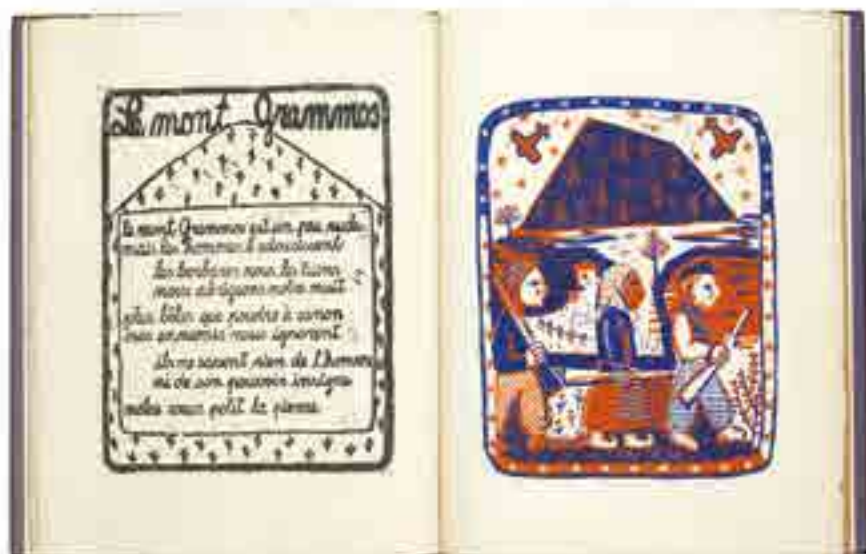 Le mont Grammos
le mont Grammos est un peu rude
mais les hommes l'adoucissent
les barbares nous les tuons
nous abrégeons notre nuit
plus bêtes que poudre à canon
nos ennemis nous ignorent
ils ne savent rien de l'homme
ni de son pouvoir insigne
notre cœur polit la pierre